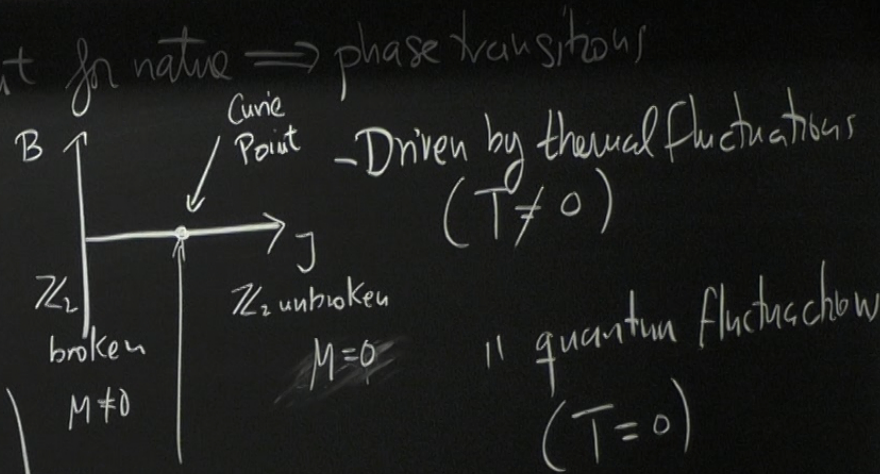 for nature ⟹ phase transitions
B
Curie
Point
J
ℤ₂
broken
M≠0
ℤ₂ unbroken
M=0
-Driven by thermal fluctuations
(T≠0)
〃 quantum fluctuations
(T=0)